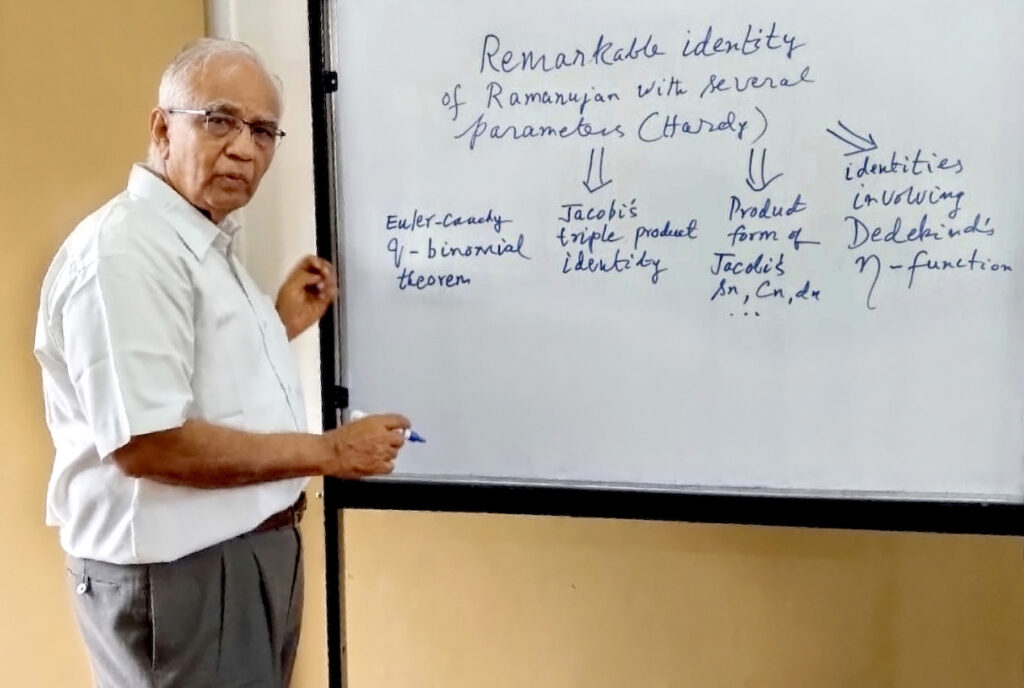 Remarkable identity
of Ramanujan with several
parameters (Hardy)
Euler-Cauchy
q-binomial
theorem
Jacobi's
triple product
identity
Product
form of
Jacobi's
sn, cn, dn
...
identities
involving
Dedekind's
η-function